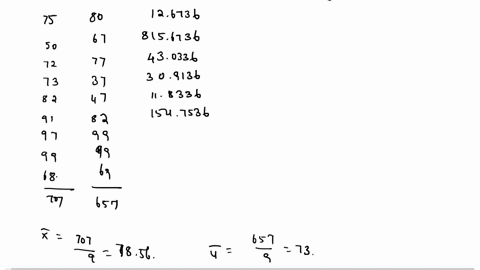 75 80 12.6736
50 67 815.6736
72 77 43.0336
73 37 30.9136
82 47 11.8336
91 82 154.7536
97 99
99 99
68. 69
707 657
x̄ = 707/9 = 78.56. ȳ = 657/9 = 73.